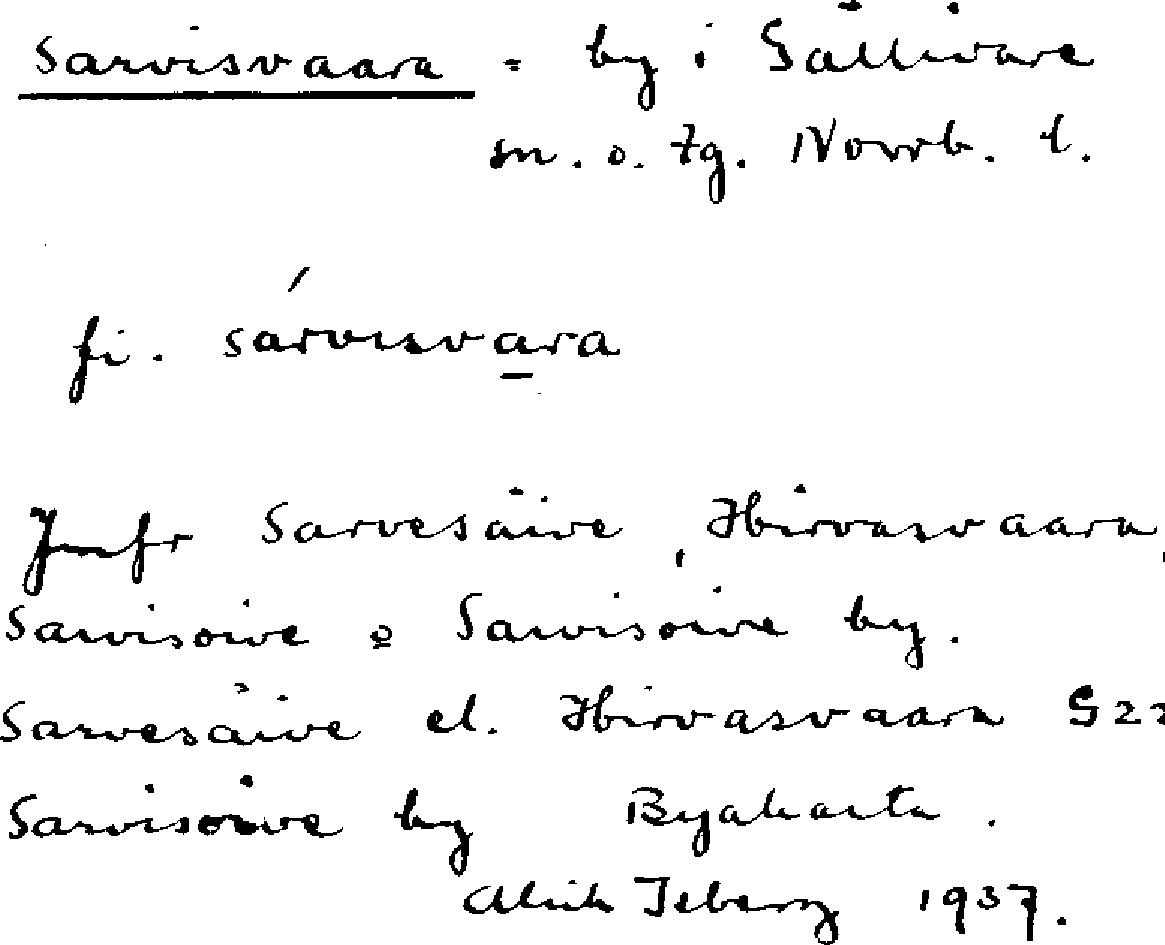 Sarvisvaara = by i Gällivare
sn. o. tg. Norrb. l.
fi. sárvisva̲ra
Jmfr Sarvesäive, Hirvasvaara,
Sarvisoive o Sarvisoive by.
Sarvesäive el. Hirvasvaara G22
Sarvisoive by Byakarta.
Alrik Isberg 1937.